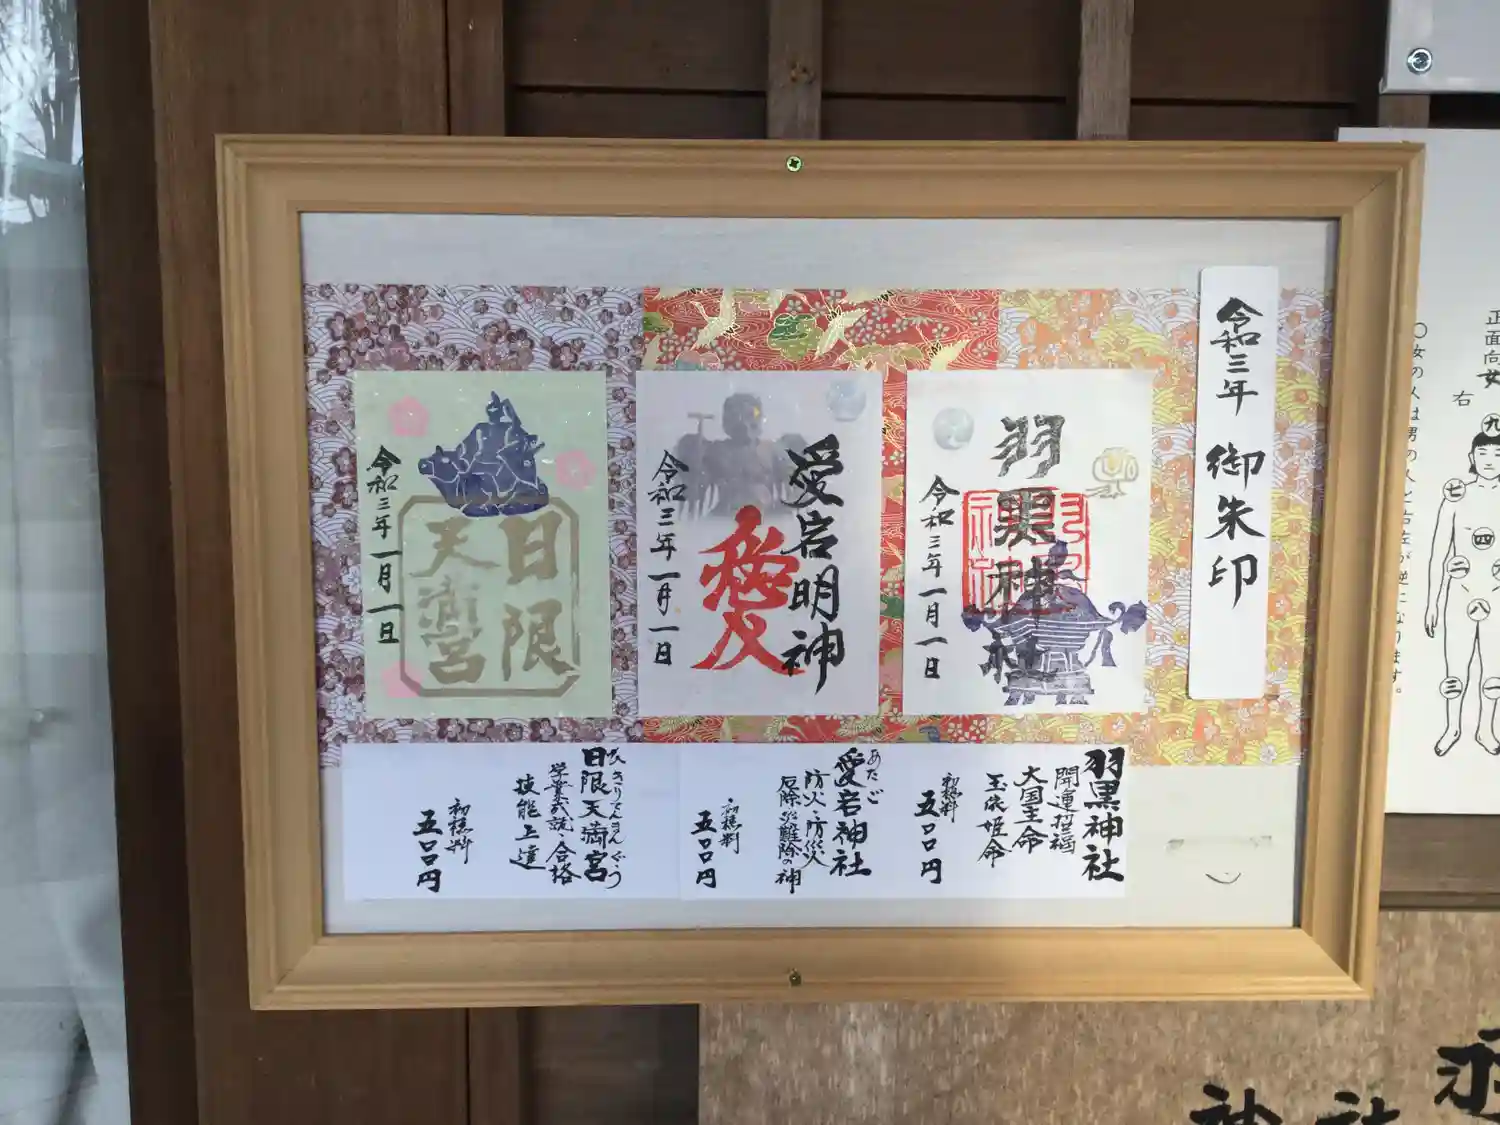 令和三年 御朱印
羽黒神社
令和三年一月一日
愛宕明神
愛
令和三年一月一日
日限
天満宮
令和三年一月一日
羽黒神社
開運招福
大国主命
玉依姫命
初穂料
五〇〇円
あたご
愛宕神社
防火・防災
厄除災難除の神
初穂料
五〇〇円
日限天満宮
学業成就 合格
技能上達
初穂料
五〇〇円
正面向
右
九
七
四
二
八
三
一
神社